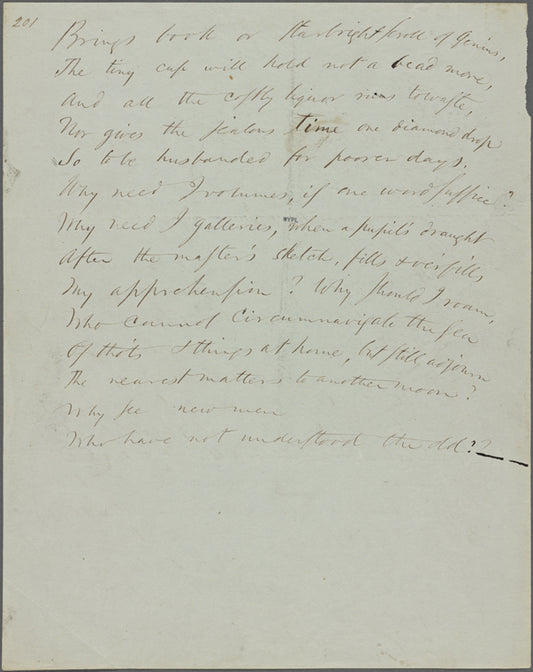 201
Brings book or starbright scroll of Genius,
The tiny cup will hold not a bead more,
And all the costly liquor runs to waste,
Nor gives the jealous time one diamond drop
So to be husbanded for poorer days.
Why need I volumes, if one word suffice?
Why need I galleries, when a pupil's draught
After the master's sketch, fills & o'erfills
My apprehension? Why should I roam,
Who cannot circumnavigate the sea
Of tho'ts & things at home, but still adjourn
The nearest matters to another moon?
Why see new men
Who have not understood the old?
NYPL